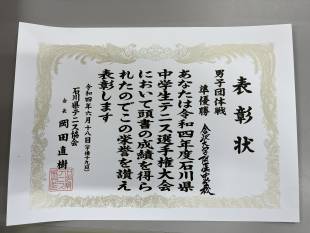 表彰状
男子団体戦
準優勝
あなたは令和四年度石川県
中学生テニス選手権大会
において頭書の成績を得ら
れたのでこの栄誉を讃え
表彰します
令和四年六月十八日
石川県テニス協会
会長 岡田直樹